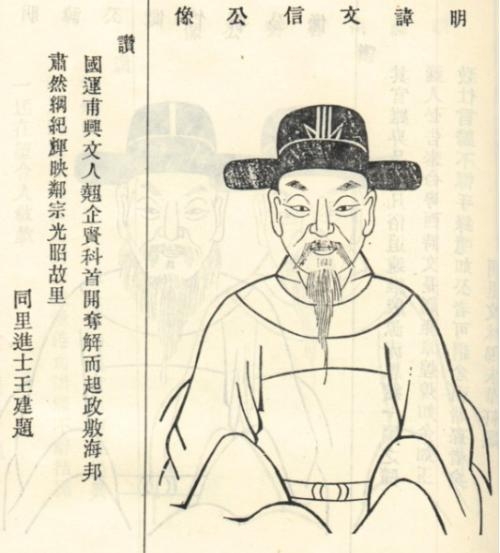 明諱文信公像
讚
國運甫興文人翹企賢科首開奪解而起政敷海邦
肅然綱紀輝映鄰宗光昭故里
同里進士王建題